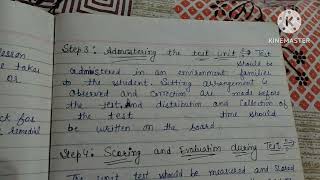 KINEMASTER
lesson
e takes
or
ck for
remedial
Step 3: Admnistering the test Unit ⇒ Test
should be
admnistered in an environment families
to the student. Sitting arrangement is
observed and correction are made before
the test, and distribution and collection of
the test time should
be written on the board.
Step 4: Scoring and Evaluation during Test ⇒
The unit test should be measured and scored